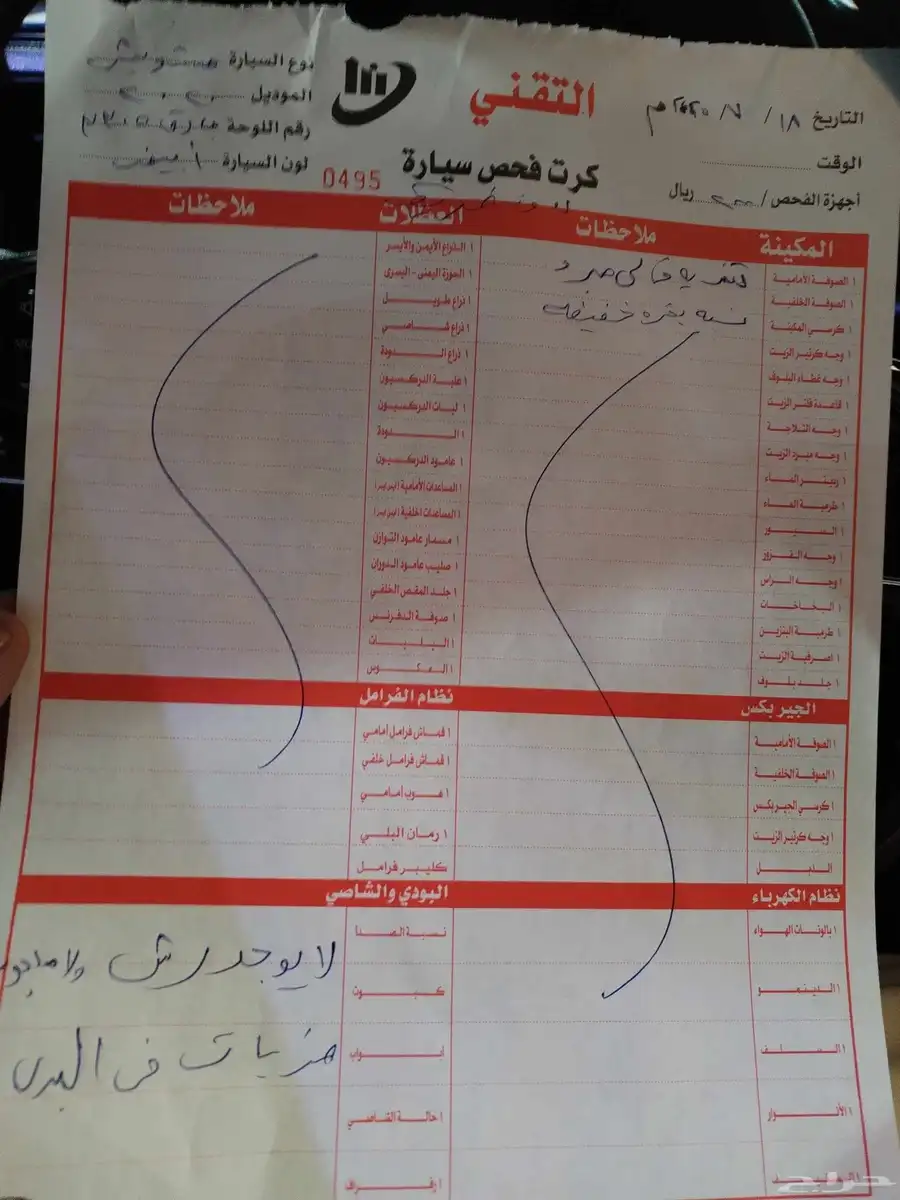 التقني
كرت فحص سيارة
0495
التاريخ ١٨/ ٧/ ٢٠٢٠م
الوقت
أجهزة الفحص / ٢٠٠ ريال
نوع السيارة
الموديل
رقم اللوحة
لون السيارة أبيض
المكينة
ملاحظات
١ الصوفة الأمامية
١ الصوفة الخلفية
١ كرسي المكينة
١ وجه كرتير الزيت
١ وجه غطاء البلوف
١ قاعدة فلتر الزيت
١ وجه الثلاجة
١ وجه مبرد الزيت
١ رديتر الماء
١ طرمبة الماء
١ السيور
١ وجه الفرور
١ وجه الراس
١ البخاخات
١ طرمبة البنزين
١ صرفية الزيت
١ جلد بلوف
نسبه بخره خفيفه
العضلات
ملاحظات
١ الذراع الأيمن والأيسر
١ الموزة اليمنى - اليسرى
١ ذراع طويل
١ ذراع شاصي
١ ذراع الدودة
١ علبة الدركسيون
١ ليات الدركسيون
١ الدودة
١ عامود الدركسيون
١ المساعدات الأمامية
١ المساعدات الخلفية
١ مسمار عامود التوازن
١ صليب عامود الدوران
١ جلد المقص الخلفي
١ صوفة الدفرنس
١ البليات
١ العكوس
الجيربكس
١ الصوفة الأمامية
١ الصوفة الخلفية
١ كرسي الجيربكس
١ وجه كرتير الزيت
الدبل
نظام الفرامل
١ قماش فرامل أمامي
١ قماش فرامل خلفي
١ هوب أمامي
١ رمان البلي
كليبر فرامل
نظام الكهرباء
١ بالونات الهواء
١ الدينمو
١ السلف
١ الأنوار
البودي والشاصي
نسبة الصدأ
كبوت
أبواب
١ حالة الشاصي
١ رفرف
لا يوجد رش ولا
ضربات في البدي
حراج